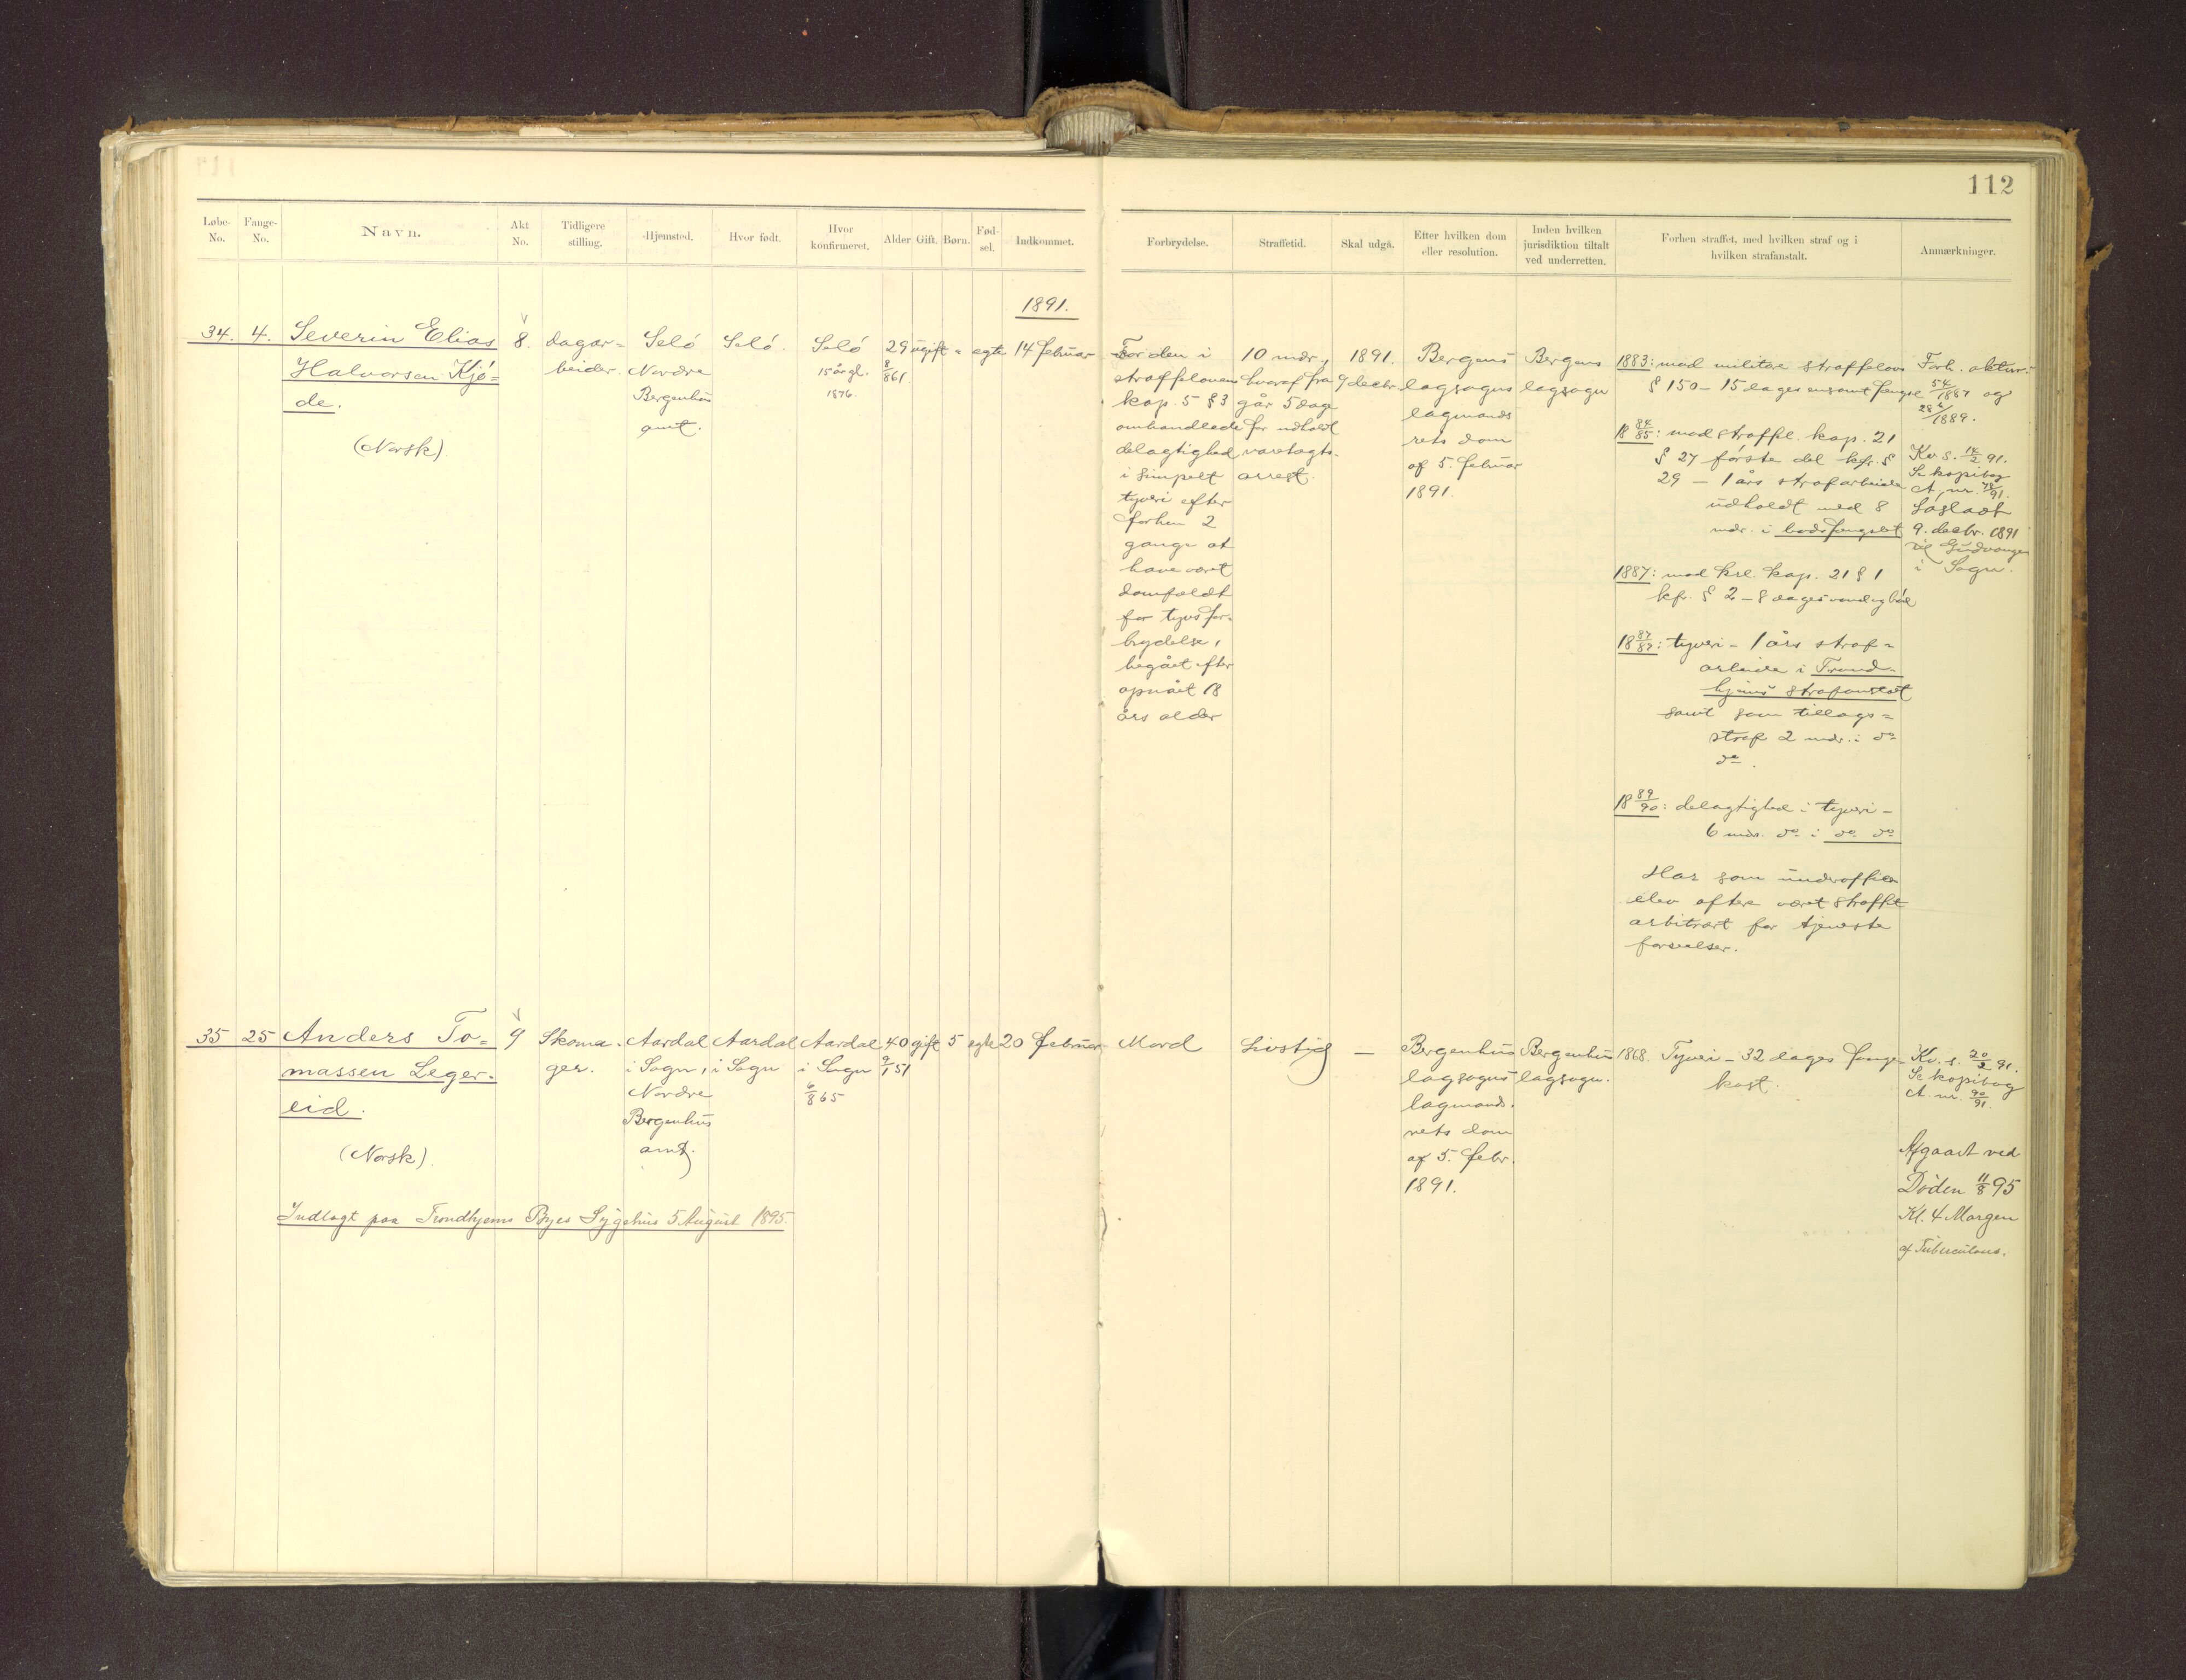 112
Løbe-No.
Fange-No.
Navn.
Akt No.
Tidligere stilling.
Hjemsted.
Hvor født.
Hvor konfirmeret.
Alder
Gift.
Børn.
Fød-sel.
Indkommet.
Forbrydelse.
Straffetid.
Skal udgå.
Efter hvilken dom eller resolution.
Inden hvilken jurisdiktion tiltalt ved underretten.
Forhen straffet, med hvilken straf og i hvilken strafanstalt.
Anmærkninger.
1891.
34.
4.
Severin Elias
Halvorsen Kjö=
de.
(Norsk)
8.
dagar=
beider.
Selö
Nordre
Bergenhus
amt.
Selö.
Selö
15 år gl.
1876.
29
8/8 61
ugift
"
egte
14 februar
For den i
straffelovens
kap. 5 § 3
omhandlede
delagtighed
i simpelt
tyveri efter
forhen 2
gange at
have været
domfældt
for tyvsfor=
brydelse,
begået efter
opnået 18
års alder
10 mdr.,
hvoraf fra
går 5 dage
for udholdt
varetægts-
arrest.
1891.
9 decbr.
Bergens
lagsogns
lagmands
rets dom
af 5. februar
1891.
Bergens
lagsogn
1883: mod militære straffelov
§ 150 – 15 dages ensomt fængsel
18 84/85: mod straffel. kap. 21
§ 27 første del kfr. §
29 – 1 års strafarbeide
udholdt med 8
mdr. i bodsfængslet
1887: mod krl. kap. 21 § 1
kfr. § 2 – 8 dages vand og bröd
18 87/89: tyveri – 1 års straf=
arbeide i Trond=
hjems strafanstalt
samt som tillægs=
straf 2 mdr. i do
do.
18 89/90: delagtighed i tyveri –
6 mdr. do i do do
Har som underofficer
elev oftere været straffet
arbitrært for tjeneste
forseelser.
Forh. aktnr.:
54/1887 og
28/1889.
Kv. s. 14/2 91.
Se kopibog
A, nr. 78/91.
Løsladt
9. decbr. 1891
til Gudvangen
i Sogn.
35
25
Anders To=
massen Leger-
eid.
(Norsk).
Indlagt paa Trondhjems Byes Sygehus 5 August 1895.
9
Skoma-
ger.
Aardal
i Sogn,
Nordre
Bergenhus
amt.
Aardal
i Sogn
Aardal
i Sogn
6/8 65
40
9/1 51
gift
5
egte
20 februar
Mord
Livstid
—
Bergenhus
lagsogns
lagmands.
rets dom
af 5. febr.
1891.
Bergenhus
lagsogn.
1868. Tyveri – 32 dages fange-
kost.
Kv. s. 20/2 91.
Se kopibog
A. nr. 90/91.
Afgaaet ved
Døden 11/8 95
Kl. 4 Morgen
af Tuberculous.